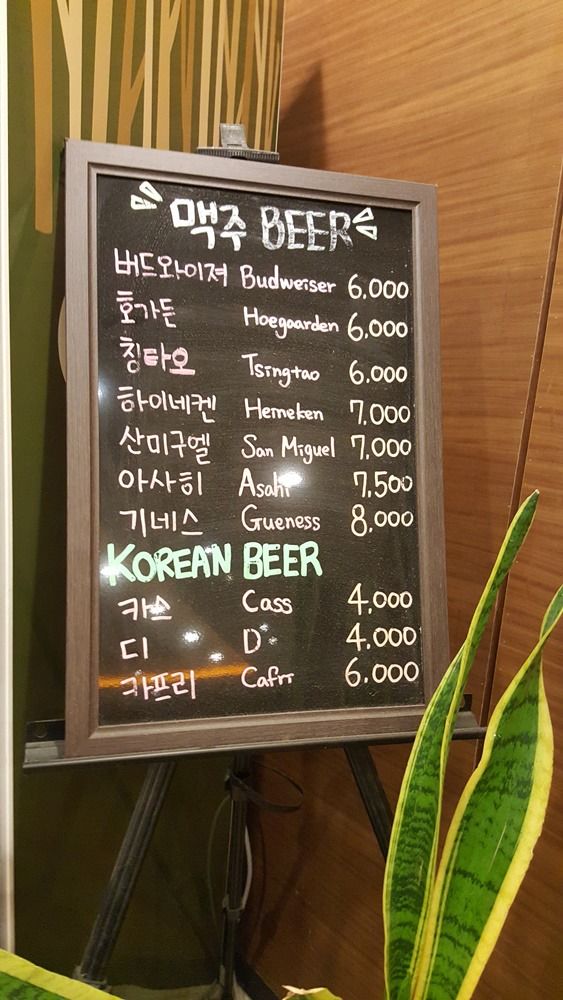 맥주 BEER
버드와이져 Budweiser 6,000
호가든 Hoegaarden 6,000
칭타오 Tsingtao 6,000
하이네켄 Heineken 7,000
산미구엘 San Miguel 7,000
아사히 Asahi 7,500
기네스 Gueness 8,000
KOREAN BEER
카스 Cass 4,000
디 D 4,000
카프리 Cafri 6,000